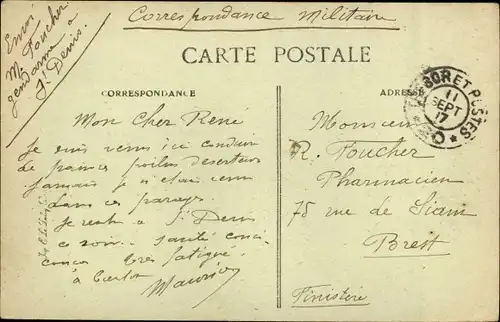 Correspondance Militaire
Envoi
M. Foucher
gendarme à
St Denis.
CARTE POSTALE
CORRESPONDANCE
ADRESSE
TRESOR ET POSTES
11
SEPT
17
Mon Cher René
Je suis venu ici conduire
de pauvres poilus déserteurs
jamais je n'étais venu
dans ces parages.
Je reste à St Denis
ce soir. Santé
très fatigué.
à bientôt
Maurice
Monsieur
R. Foucher
Pharmacien
75 rue de Siam
Brest
Finistère